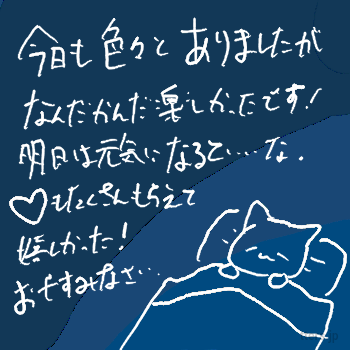 今日も色々とありましたが
なんだかんだ楽しかったです!
明日は元気になると……な.
♡もたくさんもらえて
嬉しかった!
おやすみなさい…